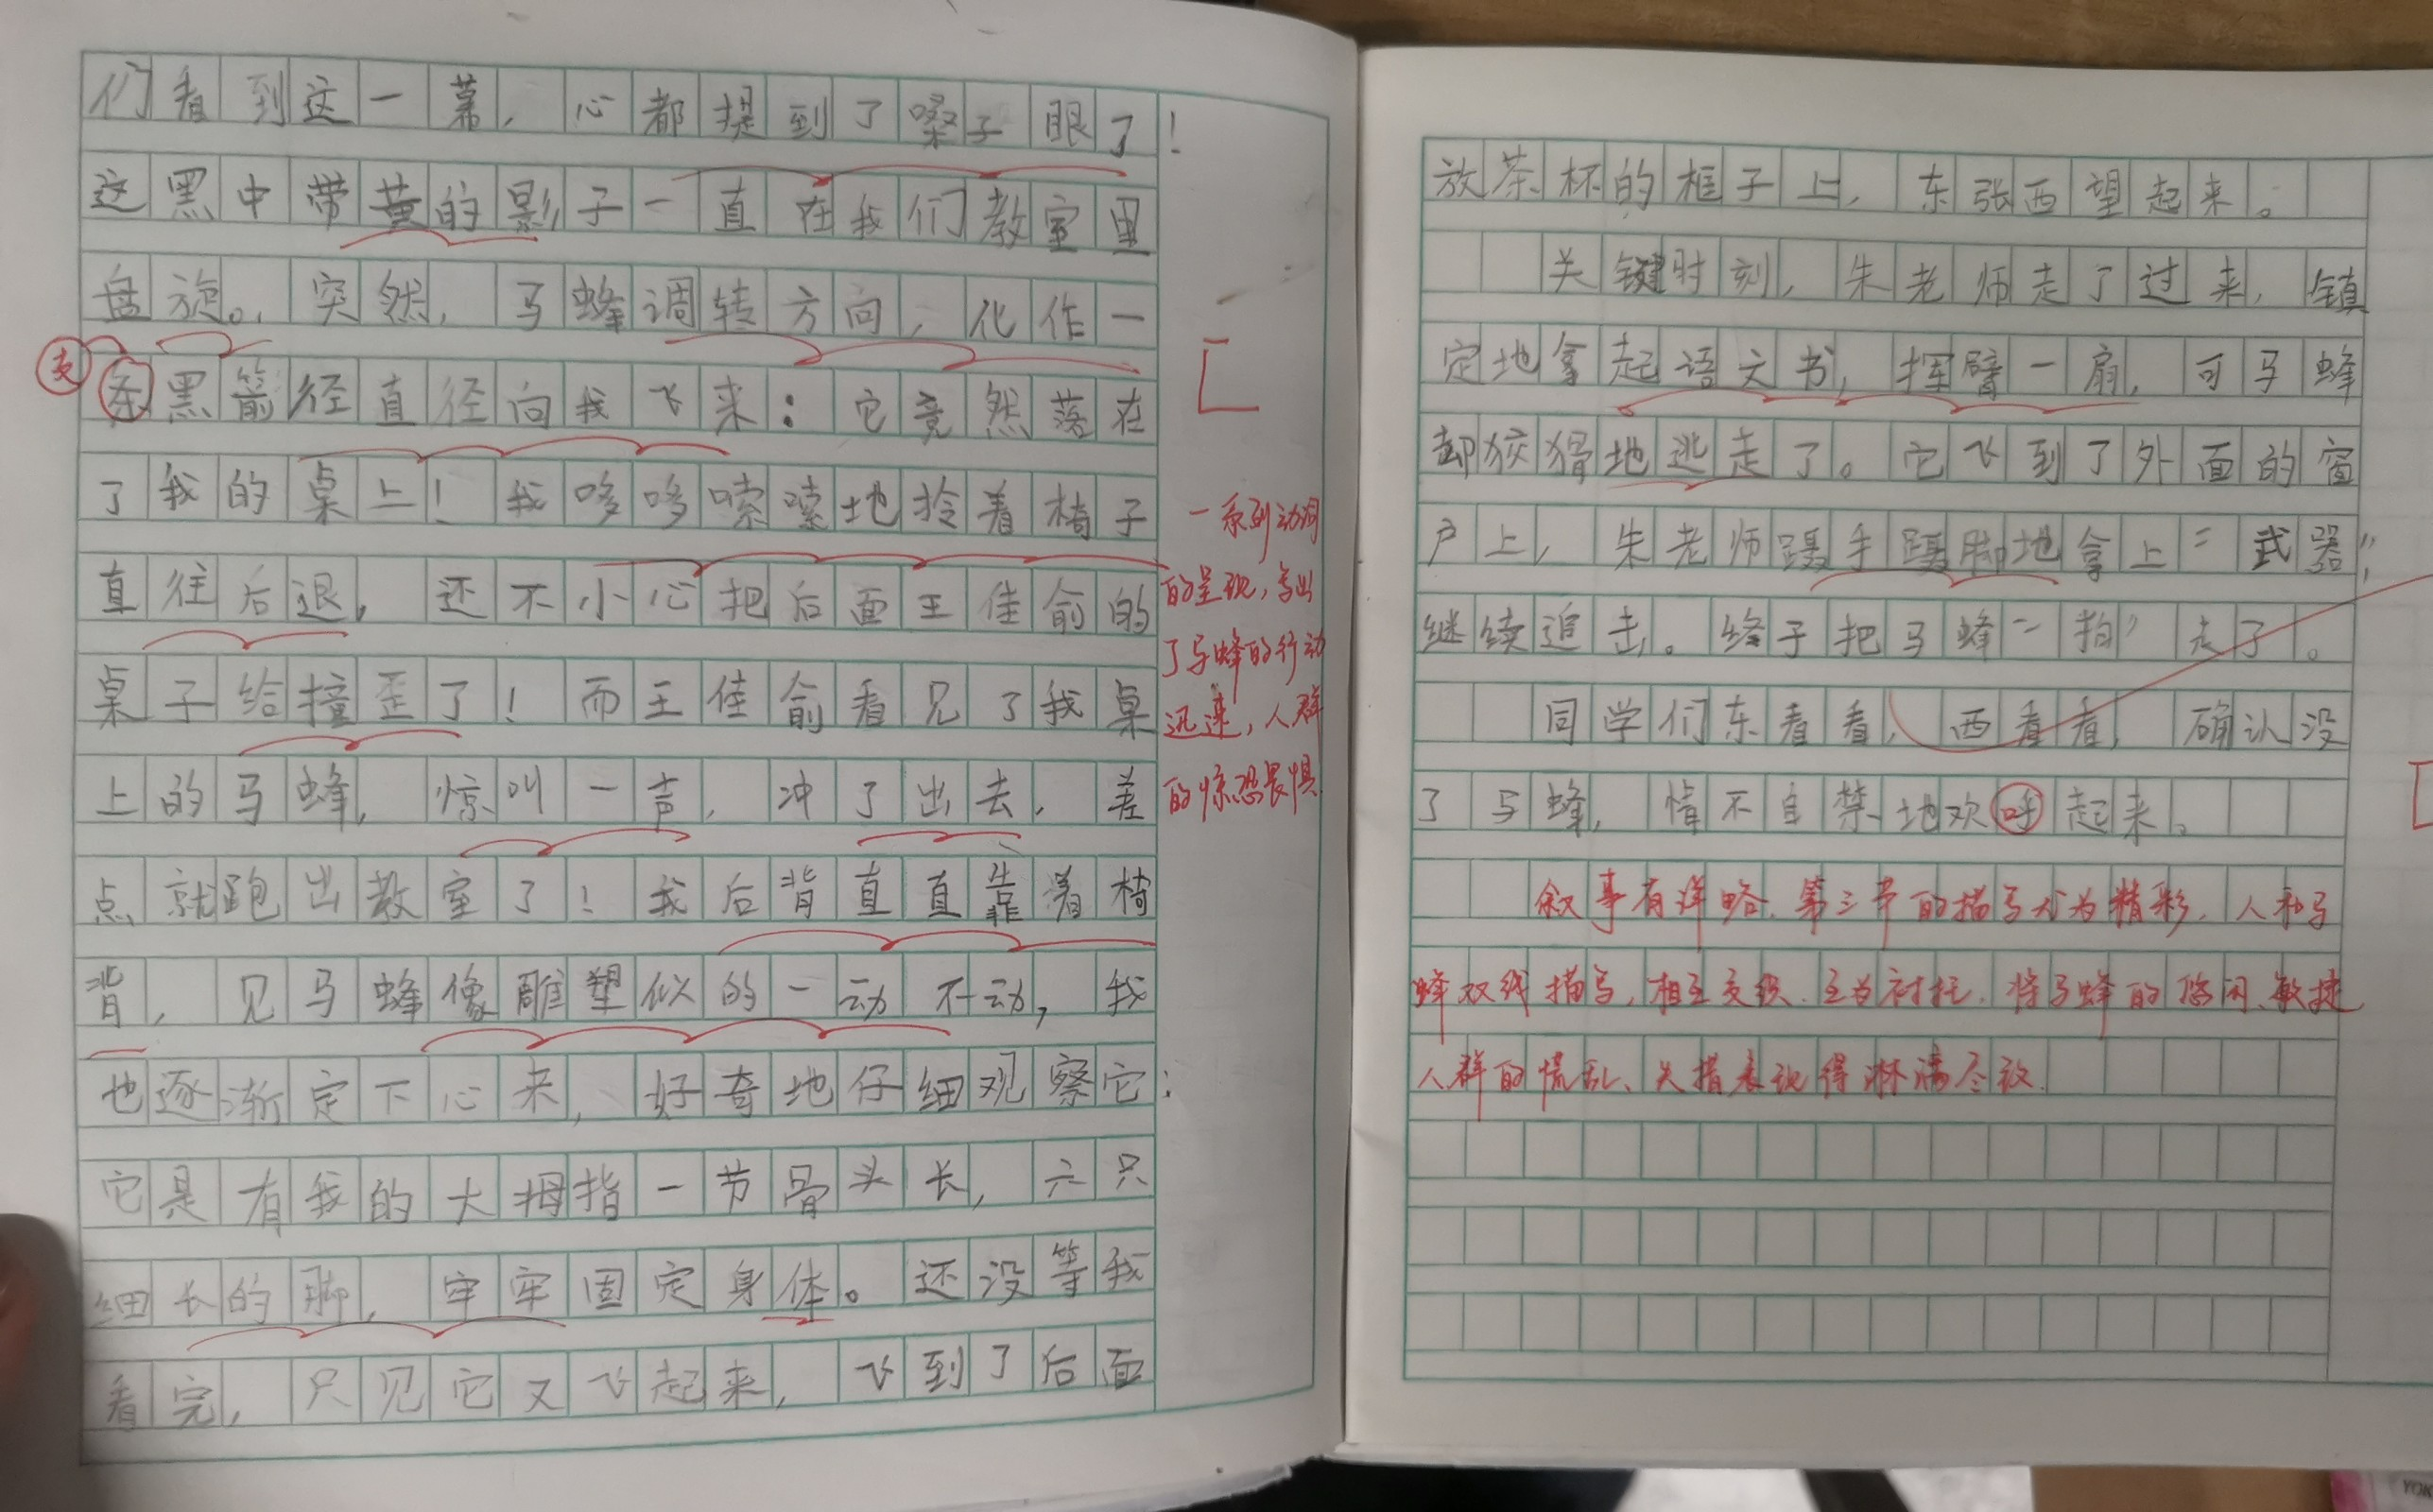 们看到这一幕，心都提到了嗓子眼了！
这黑中带黄的影子一直在我们教室里
盘旋。突然，马蜂调转方向，化作一
支
条黑箭径直径向我飞来：它竟然落在
了我的桌上！我哆哆嗦嗦地拎着椅子
直往后退，还不小心把后面王佳俞的
桌子给撞歪了！而王佳俞看见了我桌
上的马蜂，惊叫一声，冲了出去，差
点就跑出教室了！我后背直直靠着椅
背，见马蜂像雕塑似的一动不动，我
也逐渐定下心来，好奇地仔细观察它：
它是有我的大拇指一节骨头长，六只
细长的脚，牢牢固定身体。还没等我
看完，只见它又飞起来，飞到了后面
一系列动词
的呈现，写出
了马蜂的行动
迅速，人群
的惊恐畏惧
放茶杯的框子上，东张西望起来。
关键时刻，朱老师走了过来，镇
定地拿起语文书，挥臂一扇，可马蜂
却狡猾地逃走了。它飞到了外面的窗
户上，朱老师蹑手蹑脚地拿上“武器”，
继续追击。终于把马蜂“拍”走了。
同学们东看看，西看看，确认没
了马蜂，情不自禁地欢呼起来。
叙事有详略，第三节的描写尤为精彩，人和马
蜂双线描写，相互交织，互为衬托，将马蜂的悠闲、敏捷
人群的慌乱、失措表现得淋漓尽致.